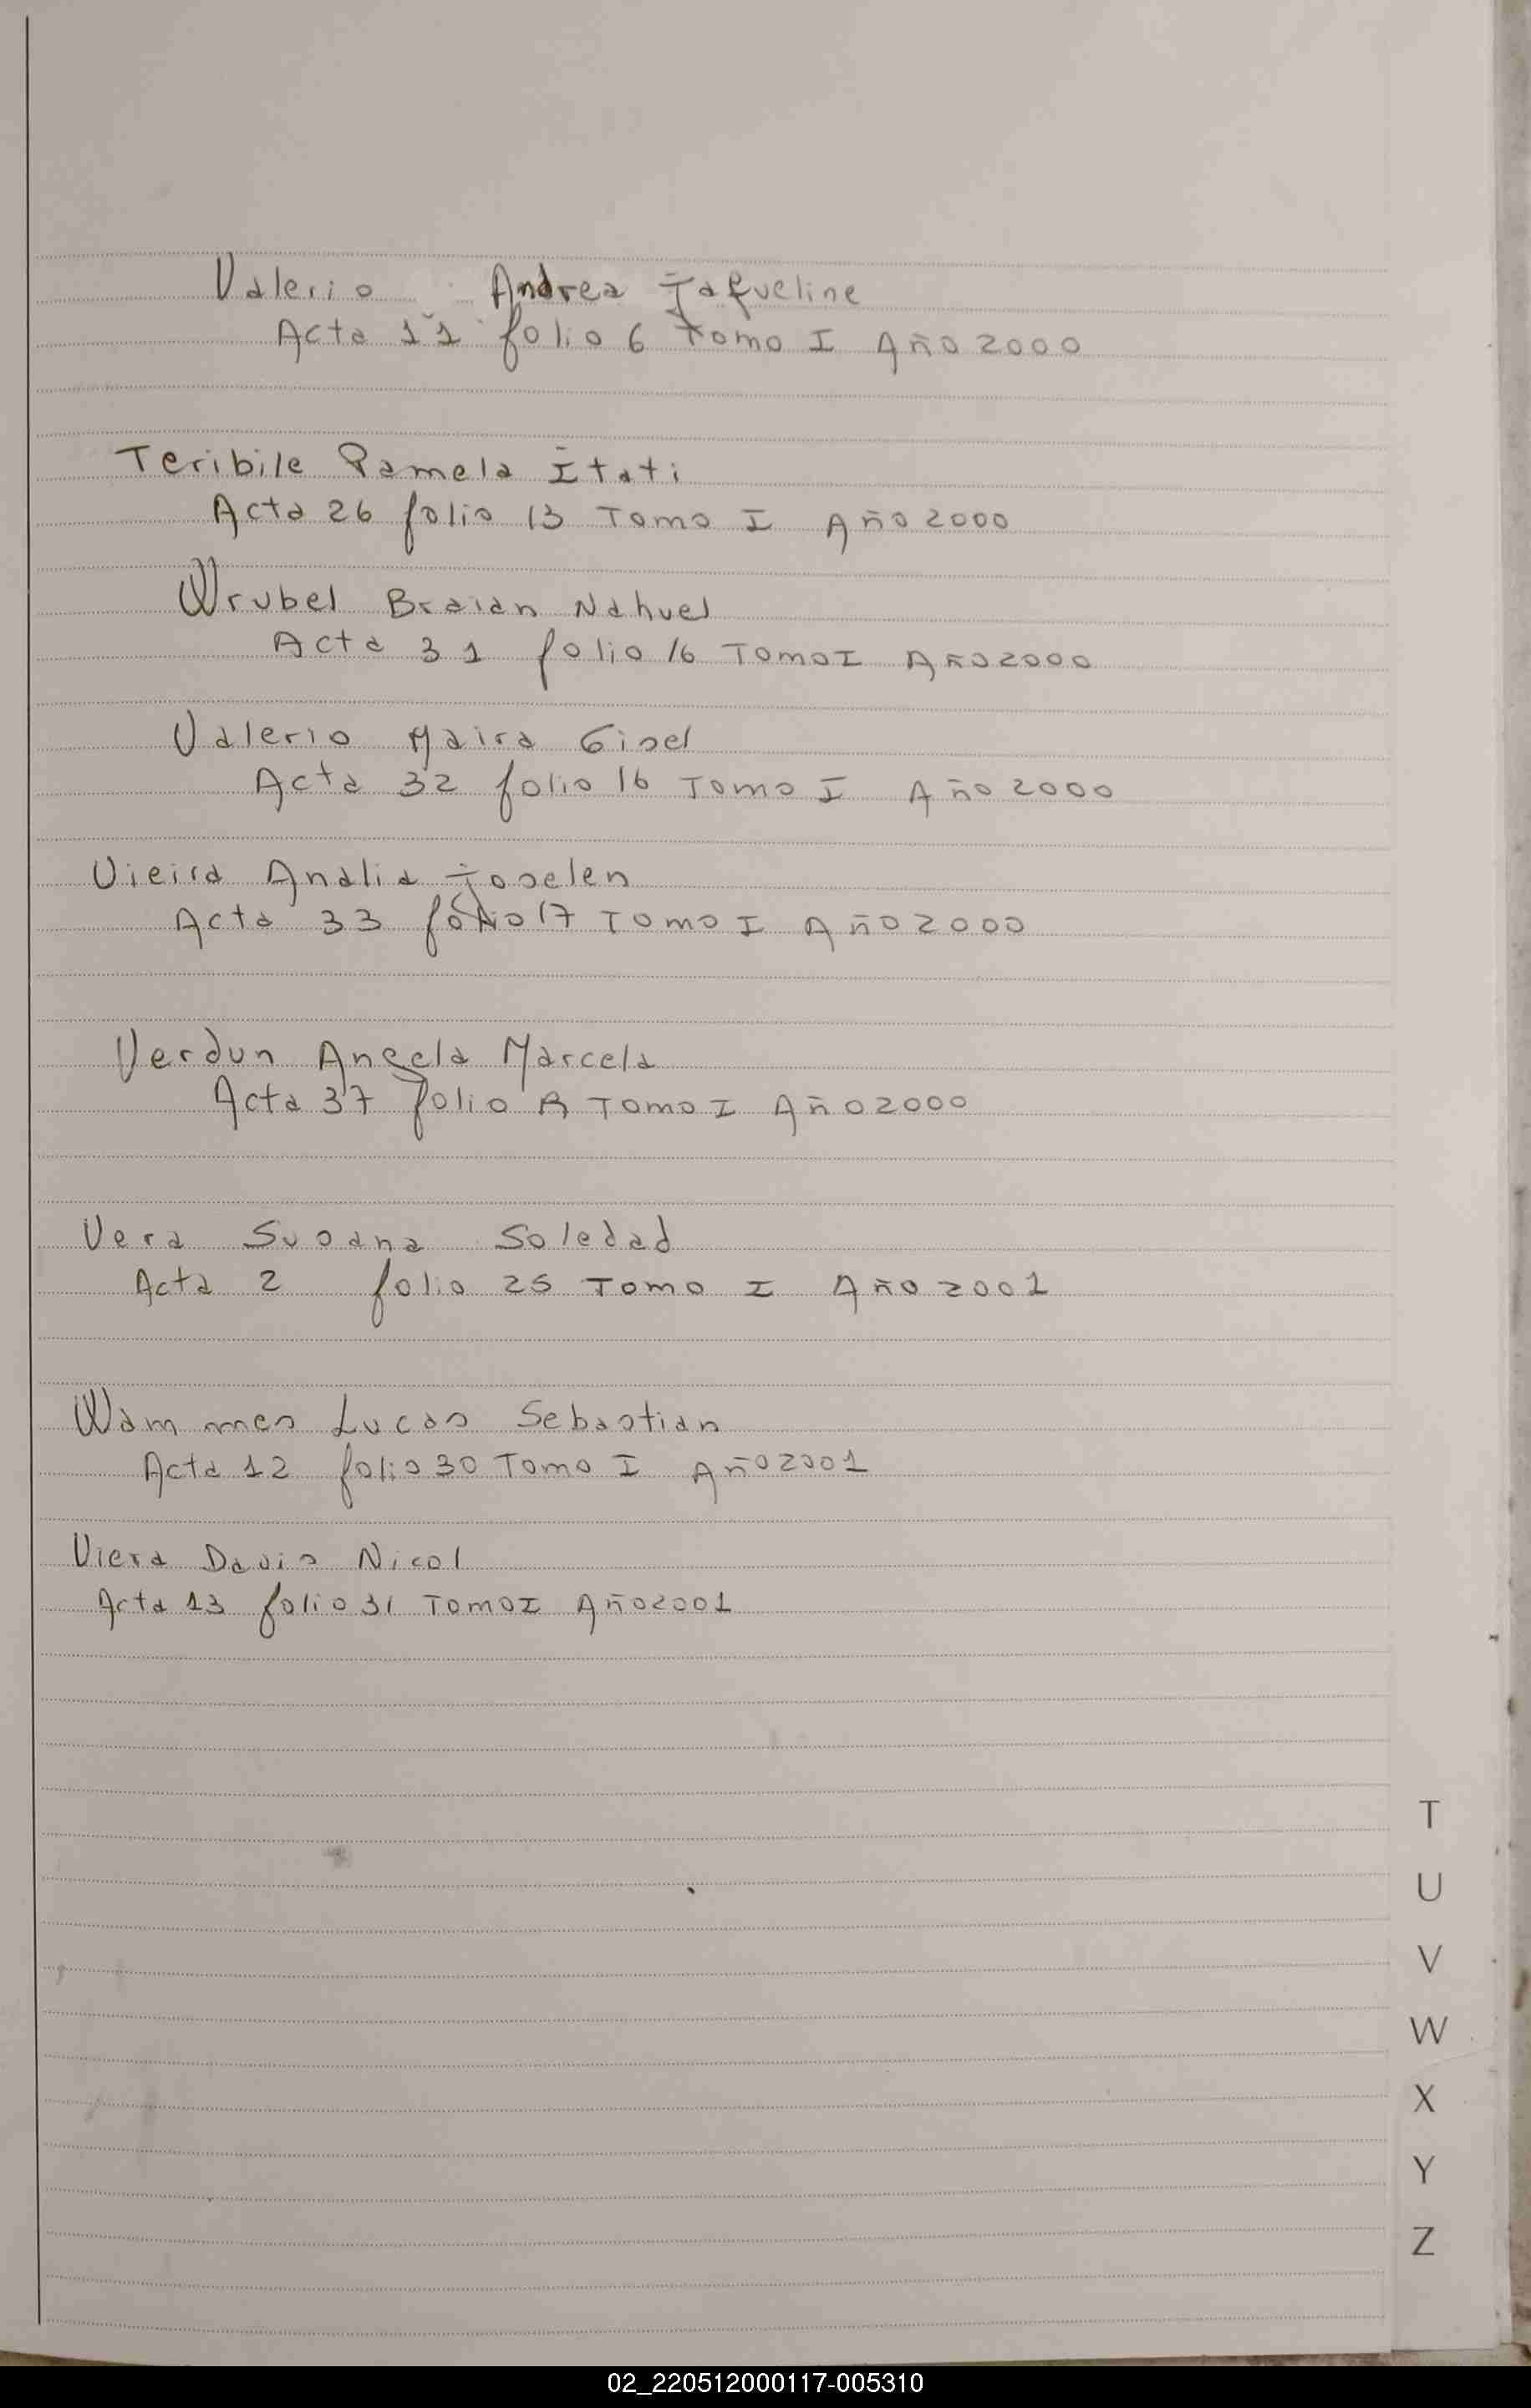 Valerio Andrea Jaqueline
Acta 11 folio 6 Tomo I Año 2000
Teribile Pamela Itati
Acta 26 folio 13 Tomo I Año 2000
Wrubel Braian Nahuel
Acta 31 folio 16 Tomo I Año 2000
Valerio Maira Gisel
Acta 32 folio 16 Tomo I Año 2000
Vieira Analia Joselen
Acta 33 folio 17 Tomo I Año 2000
Verdun Angela Marcela
Acta 37 folio Tomo I Año 2000
Vera Susana Soledad
Acta 2 folio 25 Tomo I Año 2001
Wammes Lucas Sebastian
Acta 12 folio 30 Tomo I Año 2001
Viera Nicol
Acta 13 folio 31 Tomo I Año 2001
T
U
V
W
X
Y
Z
02_220512000117-005310